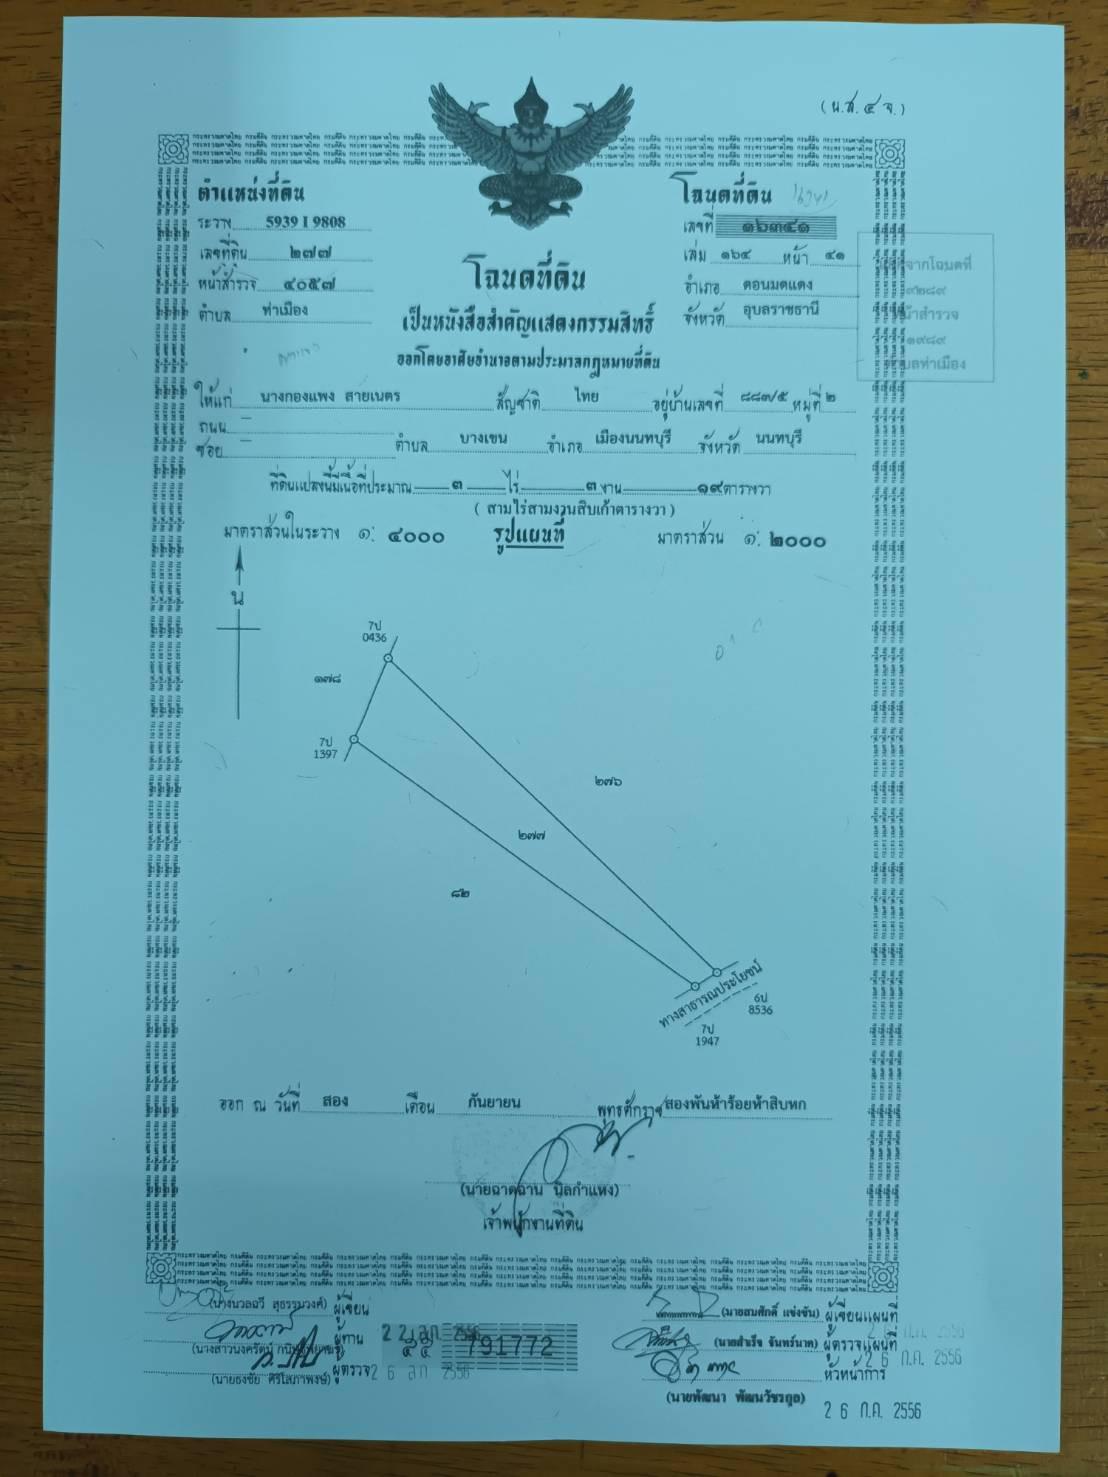 (น.ส.๔ จ.)
ตำแหน่งที่ดิน
ระวาง 5939 I 9808
เลขที่ดิน ๒๗๗
หน้าสำรวจ ๔๐๕๗
ตำบล ท่าเมือง
โฉนดที่ดิน
เลขที่ ๑๖๓๔๑
เล่ม ๑๖๔ หน้า ๔๑
อำเภอ ดอนมดแดง
จังหวัด อุบลราชธานี
จากโฉนดที่
๙๒๘๙
หน้าสำรวจ
๑๙๘๙
ตำบลท่าเมือง
โฉนดที่ดิน
เป็นหนังสือสำคัญแสดงกรรมสิทธิ์
ออกโดยอาศัยอำนาจตามประมวลกฎหมายที่ดิน
ให้แก่ นางกองแพง สายเนตร สัญชาติ ไทย อยู่บ้านเลขที่ ๘๘๗/๕ หมู่ที่ ๒
ถนน
ซอย ตำบล บางเขน อำเภอ เมืองนนทบุรี จังหวัด นนทบุรี
ที่ดินแปลงนี้มีเนื้อที่ประมาณ ๓ ไร่ ๓ งาน ๑๙ ตารางวา
( สามไร่สามงานสิบเก้าตารางวา )
มาตราส่วนในระวาง ๑: ๔๐๐๐ รูปแผนที่ มาตราส่วน ๑: ๒๐๐๐
น
7ป
0436
๑๗๘
7ป
1397
๒๗๖
๒๗๗
๘๒
ทางสาธารณประโยชน์
6ป
8536
7ป
1947
ออก ณ วันที่ สอง เดือน กันยายน พุทธศักราช สองพันห้าร้อยห้าสิบหก
(นายฉาดฉาน นิลกำแหง)
เจ้าพนักงานที่ดิน
(นางนวลฉวี สุธรรมวงศ์) ผู้เขียน
ผู้ทาน
(นายธงชัย ศิริโสภาพงษ์) ผู้ตรวจ 26 ส.ค. 2556
๕๕ 791772
(นายสมศักดิ์ แข่งขัน) ผู้เขียนแผนที่
(นายสำเร็จ จันทร์นาค) ผู้ตรวจแผนที่
26 ก.ค. 2556
หัวหน้าการ
(นายพัฒนา พัฒนวัชรกูล)
26 ก.ค. 2556